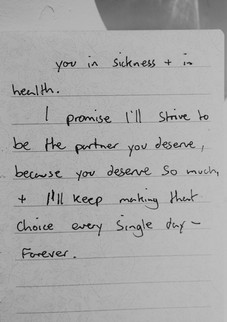 you in sickness + in
health.
I promise I'll strive to
be the partner you deserve,
because you deserve so much,
+ I'll keep making that
choice every single day –
Forever.